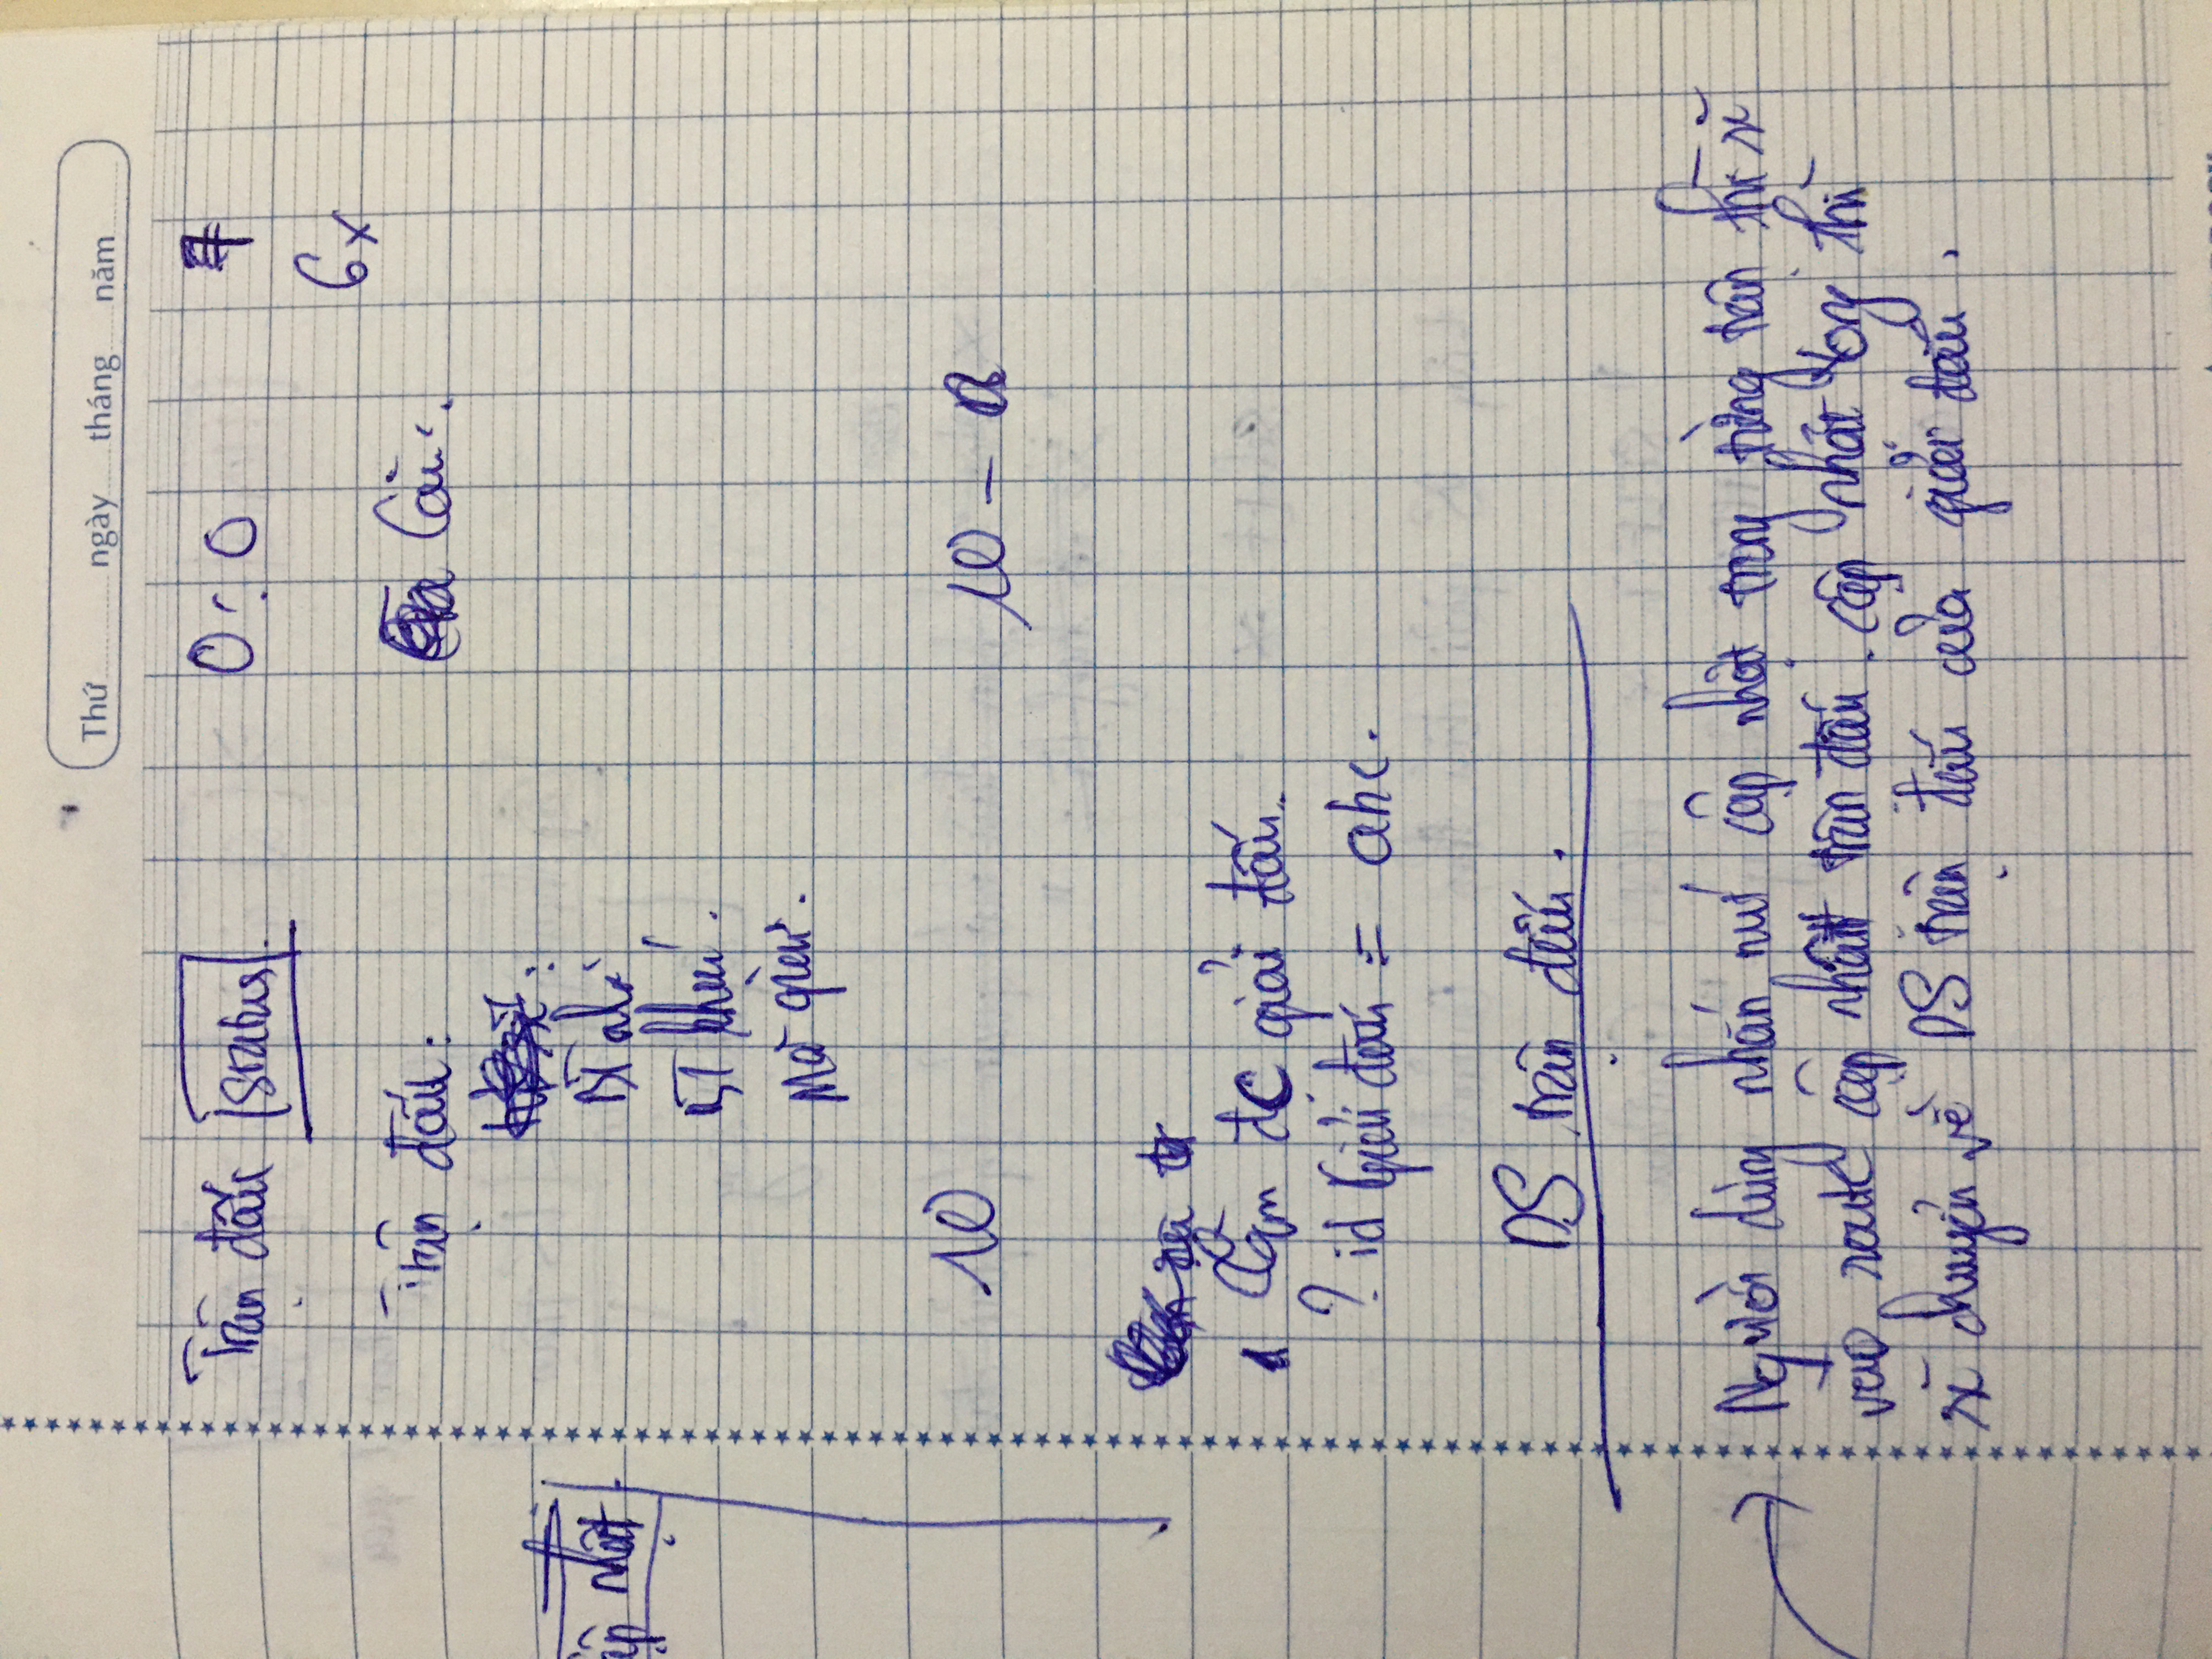 Thứ ngày tháng năm
Trận đấu status. 0 : 0
6x
Trận đấu: Cài:
ập nhật
BT nhà
BT khá.
Mở giải.
10 10 -
1 Cần đc giải đấu.
? id Giải đấu = abc.
DS trận đấu.
Người dùng nhấn nút cập nhật trong từng trận thì sẽ
vào route cập nhật trận đấu. cập nhật xong thì
sẽ chuyển về DS trận đấu của giải đấu.